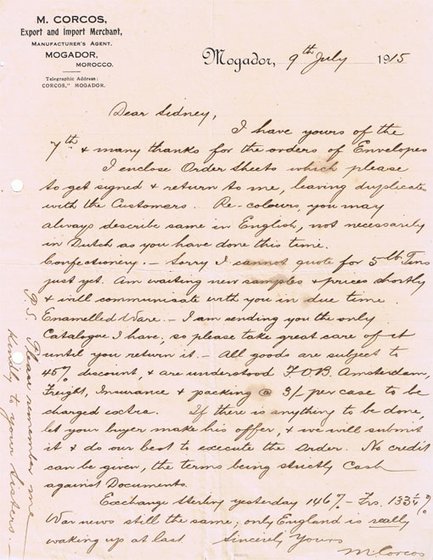 M. CORCOS,
Export and Import Merchant,
MANUFACTURER'S AGENT.
MOGADOR,
MOROCCO.
Telegraphic Address:
CORCOS," MOGADOR.
Mogador, 9th July 1915
Dear Sidney,
I have yours of the
7th & many thanks for the orders of Envelopes
I enclose Order Sheets which please
to get signed & return to me, leaving duplicate
with the Customers. Re-colours, you may
always describe same in English, not necessarily
in Dutch as you have done this time.
Confectionery. - Sorry I cannot quote for 5 lb Tins
just yet. Am waiting new samples & prices shortly
& will communicate with you in due time.
Enamelled Ware. - I am sending you the only
Catalogue I have, so please take great care of it
until you return it. - All goods are subject to
45% discount, & are understood F.O.B. Amsterdam,
Freight, Insurance & packing @ 3/- per case to be
charged extra. If there is anything to be done,
let your buyer make his offer, & we will submit
it & do our best to execute the Order. No credit
can be given, the terms being strictly Cash
against Documents.
Exchange Sterling yesterday 146%- Frs. 133¼%
War news still the same; only England is really
waking up at last Sincerely Yours
M. Corcos
P.S. Please remember me
kindly to your sisters.